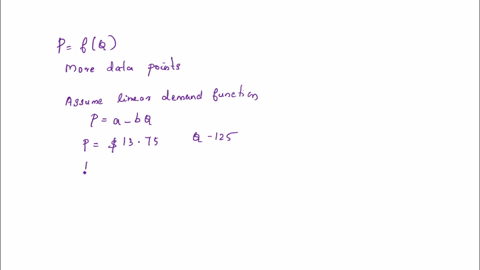 P = f(Q)
More data points
Assume linear demand function
P = a - bQ
P = $13.75 Q - 125